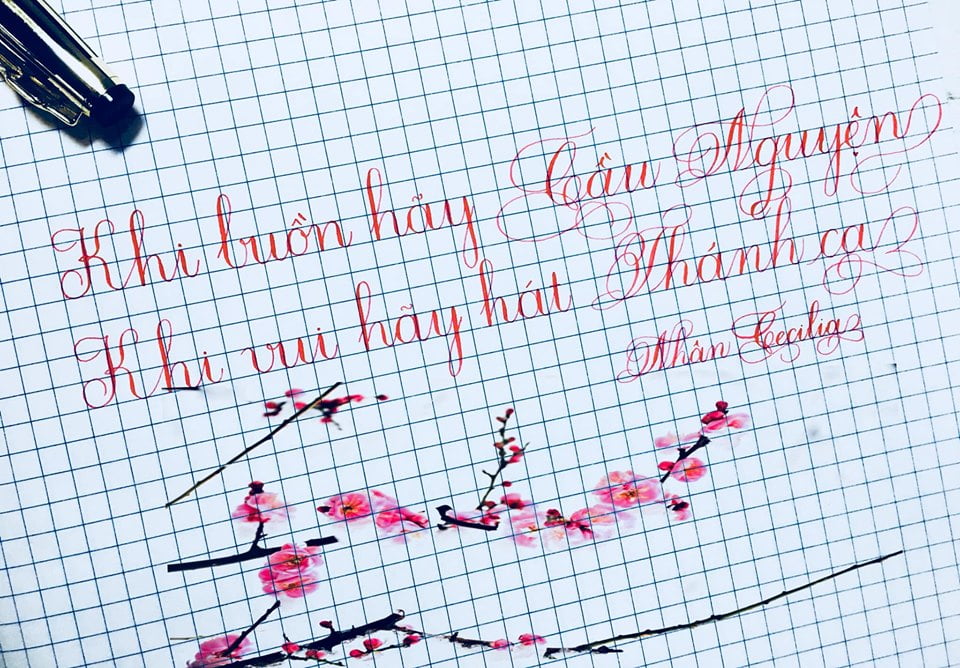 Khi buồn hãy Cầu Nguyện
Khi vui hãy hát Thánh ca
Nhân Cecilia